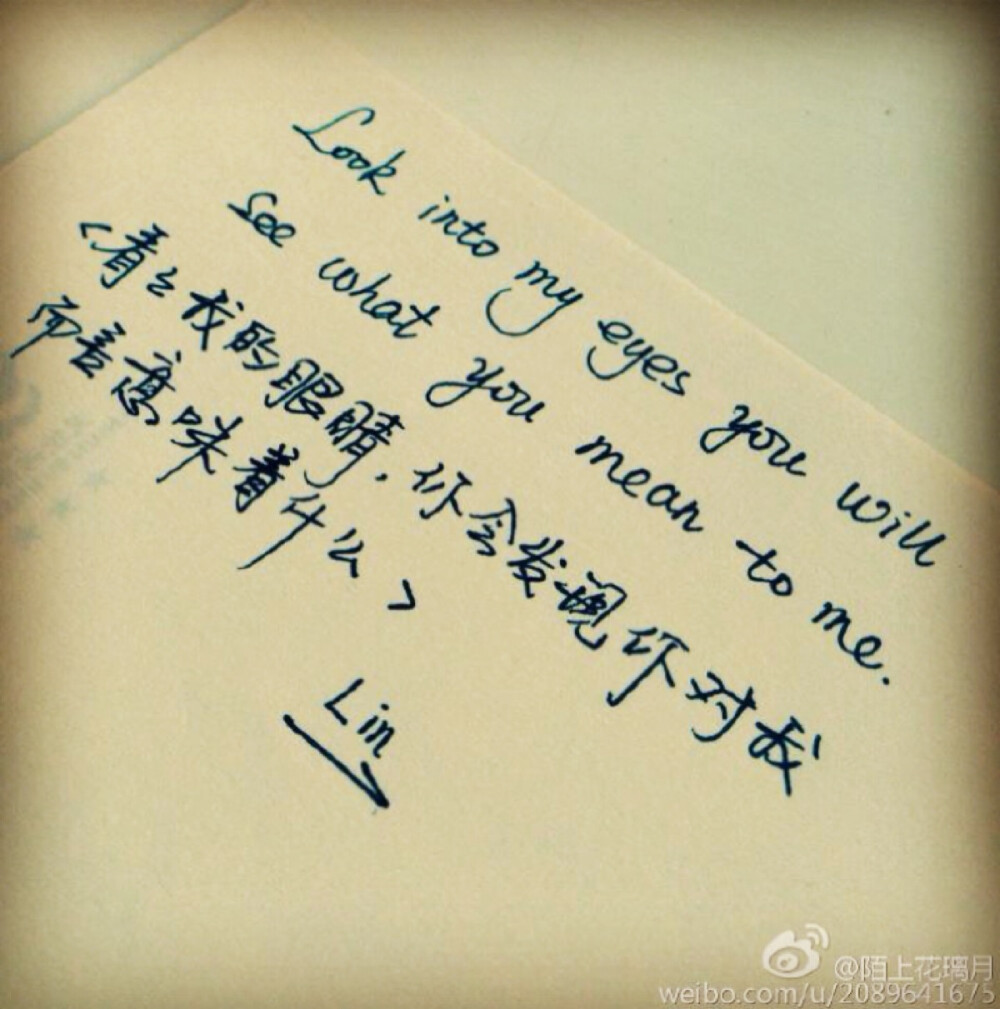 Look into my eyes you will
see what you mean to me.
<看看我的眼睛，你会发现你对我
而言意味着什么>
Lin
@陌上花璃月
weibo.com/u/2089641675